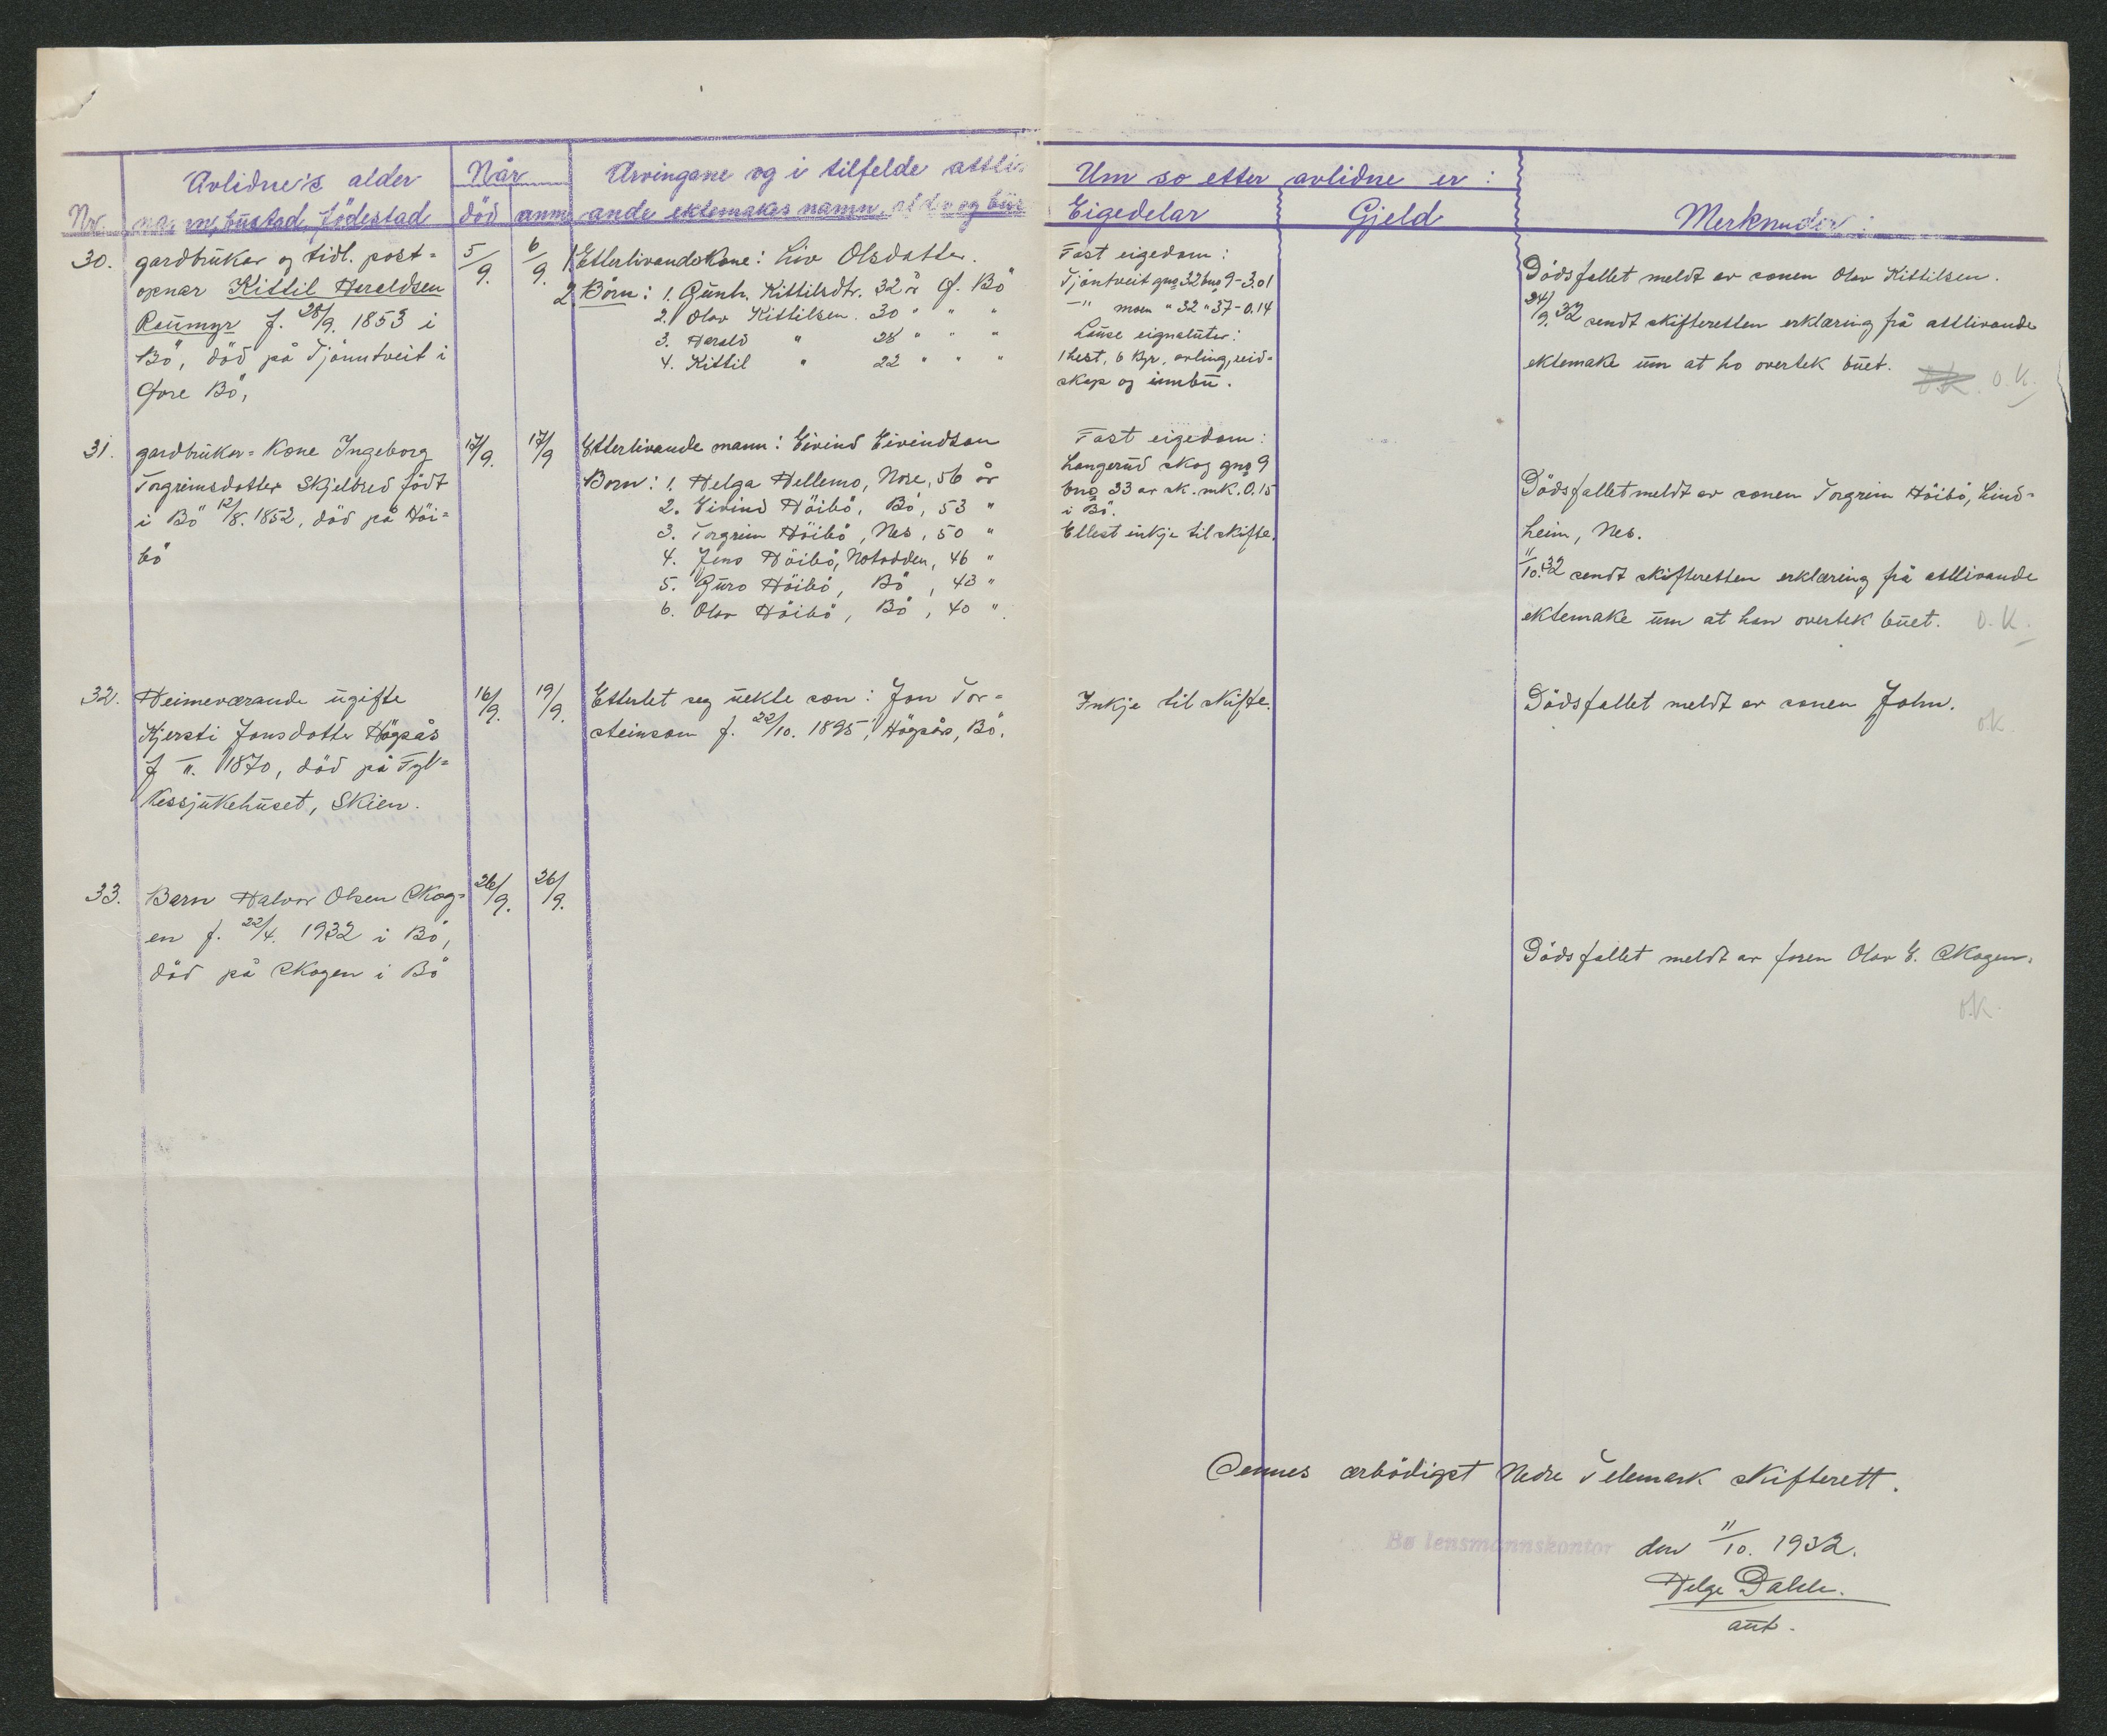 Avlidne's alder
Når
Arvingane og i tilfelde attli
Um so etter avlidne er:
Nr. namn, bustad, födestad
död
anm.
ande ektemakes namn, alder og bu
Eigedelar
Gjeld
Merknader:
30. gardbrūkar og tidl. post=
opnar Kittil Heraldsen
Raūmyr f. 28/9. 1853 i
Bö, död på Tjönntveit i
Öfre Bö,
5/9.
6/9.
1 Etterlivande Kone: Liv Olsdatter.
2 Börn: 1. Gūnh. Kittilsdtr. 32 år Ö. Bö
2. Olav Kittilsen. 30 " " "
3. Herald " 28 " " "
4. Kittil " 22 " " "
Fast eigedom:
Tjöntveit gno 32 bno 9-3.01
-"- moen " 32 " 37-0.14
Laūse eignalūter:
1 hest, 6 kyr, avling, reid=
skap og innbū.
Dödsfallet meldt av sonen Olav Kittilsen.
24/9. 32 sendt skifteretten erklæring frå attlivande
ektemake ūm at ho overtek būet.
O.K. O.K.
31. gardbrūkar= Kone Ingeborg
Torgrimsdotter Skjelbred födt
i Bö 12/8. 1852, död på Höi=
bö
17/9.
17/9
Etterlivande mann: Eivind Eivindson
Born: 1. Helga Hellemo, Nore, 56 år
2. Eivind Höibö, Bö, 53 "
3. Torgrim Höibö, Nes, 50 "
4. Jens Höibö, Notodden, 46 "
5. Gūro Höibö, Bö, 43 "
6. Olav Höibö, Bö, 40 "
Fast eigedom:
Langerūd skog gno 9
bno 33 av sk. mk. 0.15
i Bö.
Ellest inkje til skifte.
Dödsfallet meldt av sonen Torgrim Höibö, Lind=
heim, Nes.
11/10. 32 sendt skifteretten erklæring frå attlivande
ektemake ūm at han overtek būet. O.K.
32. Heimeværande ūgifte
Kjersti Jonsdotter Högsås
f 1870, död på Fyl=
kessjūkehūset, Skien.
16/9.
19/9.
Etterlet seg ūekte son: Jon Tor=
steinson f. 22/10. 1895, Högsås, Bö.
Inkje til skifte.
Dödsfallet meldt av sonen John.
ok.
33. Barn Halvor Olsen Skog=
en f. 22/4. 1932 i Bö,
död på Skogen i Bö
26/9.
26/9.
Dödsfallet meldt av faren Olav E. Skogen.
ok.
Sennes ærbödigst Nedre Telemark skifterett.
Bø lensmannskontor den 11/10. 1932.
Helge Dahle.
aūt.